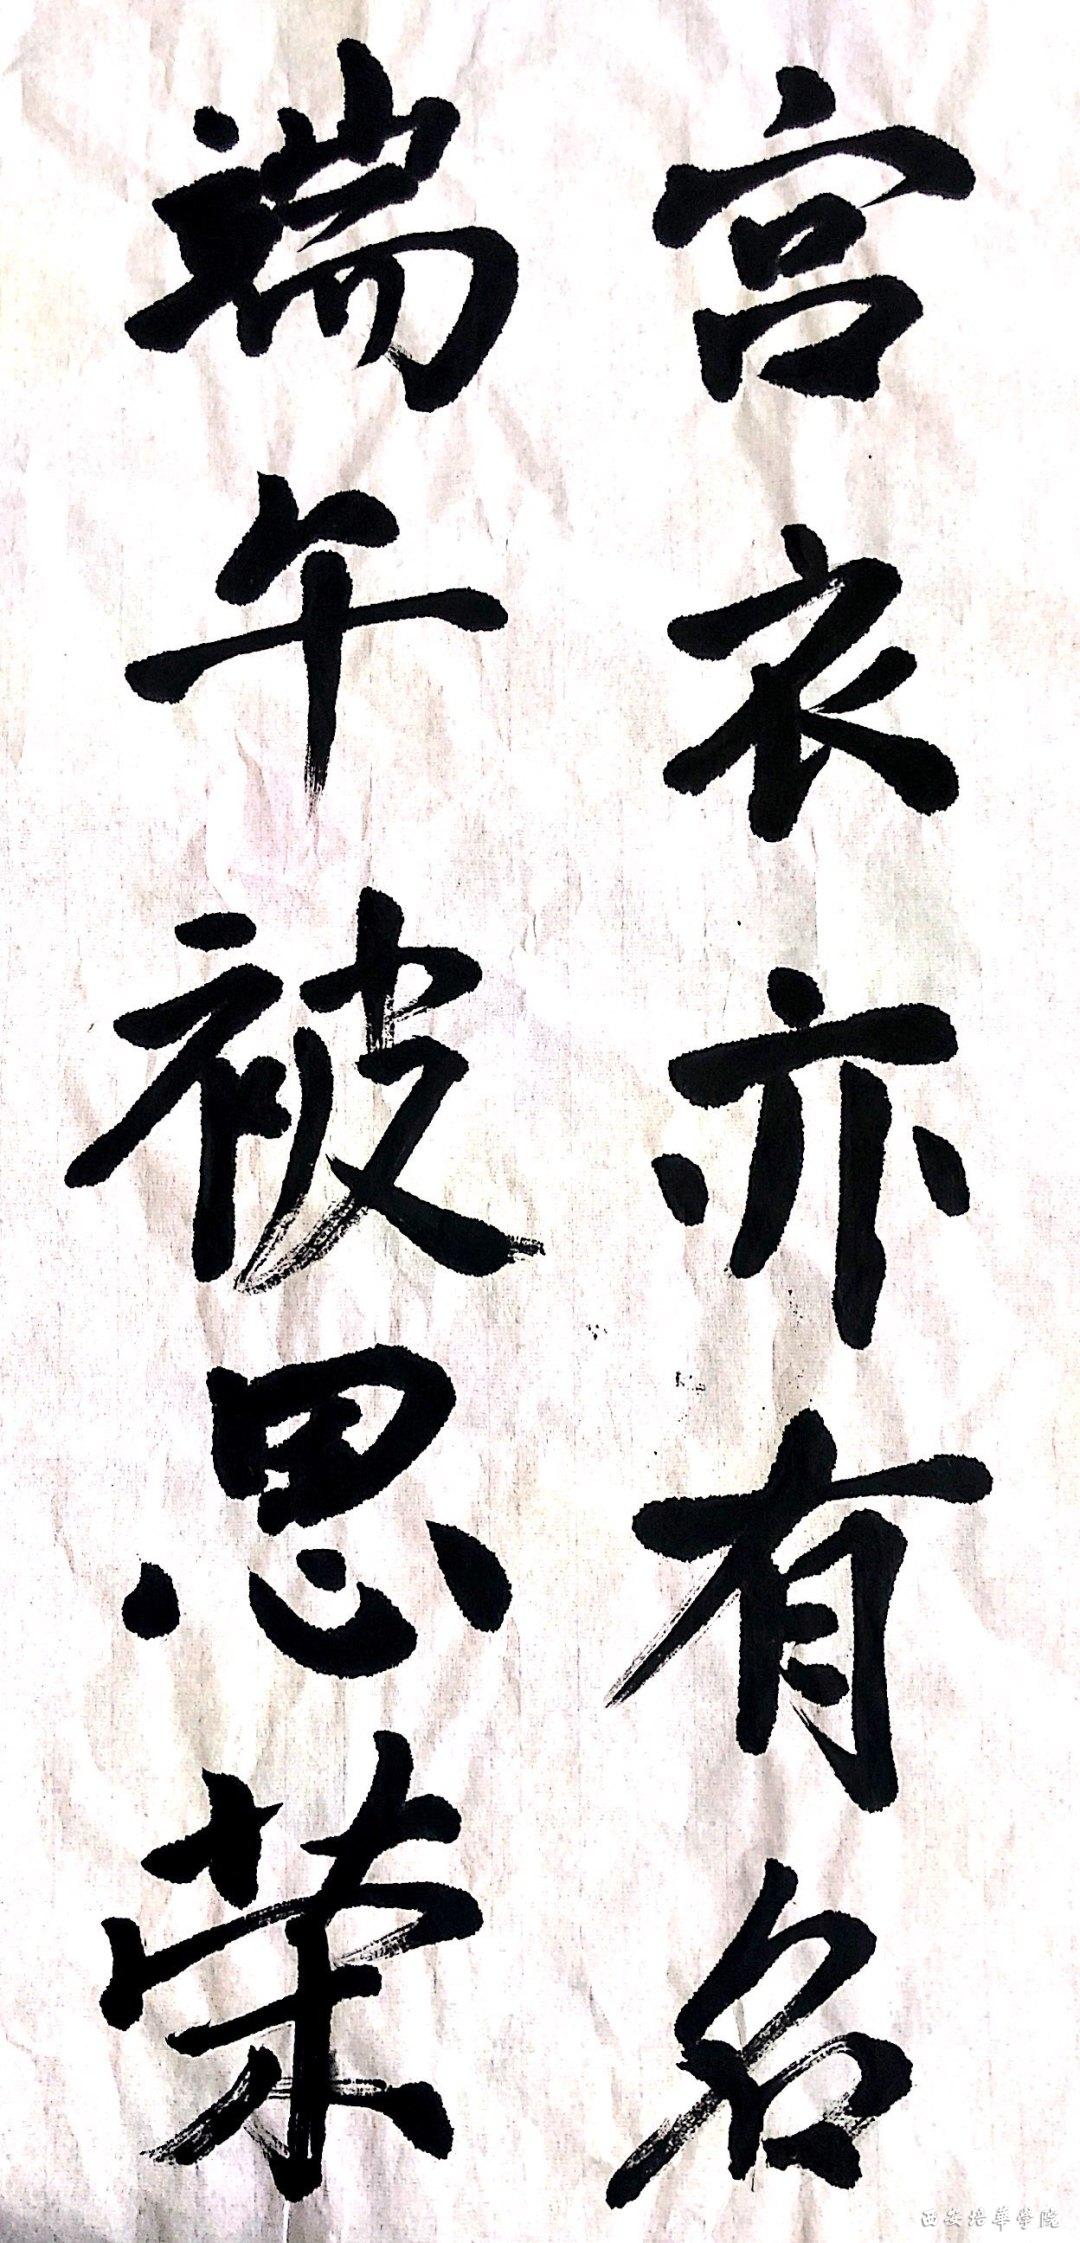 宫衣亦有名
端午被思荣
西安培華学院